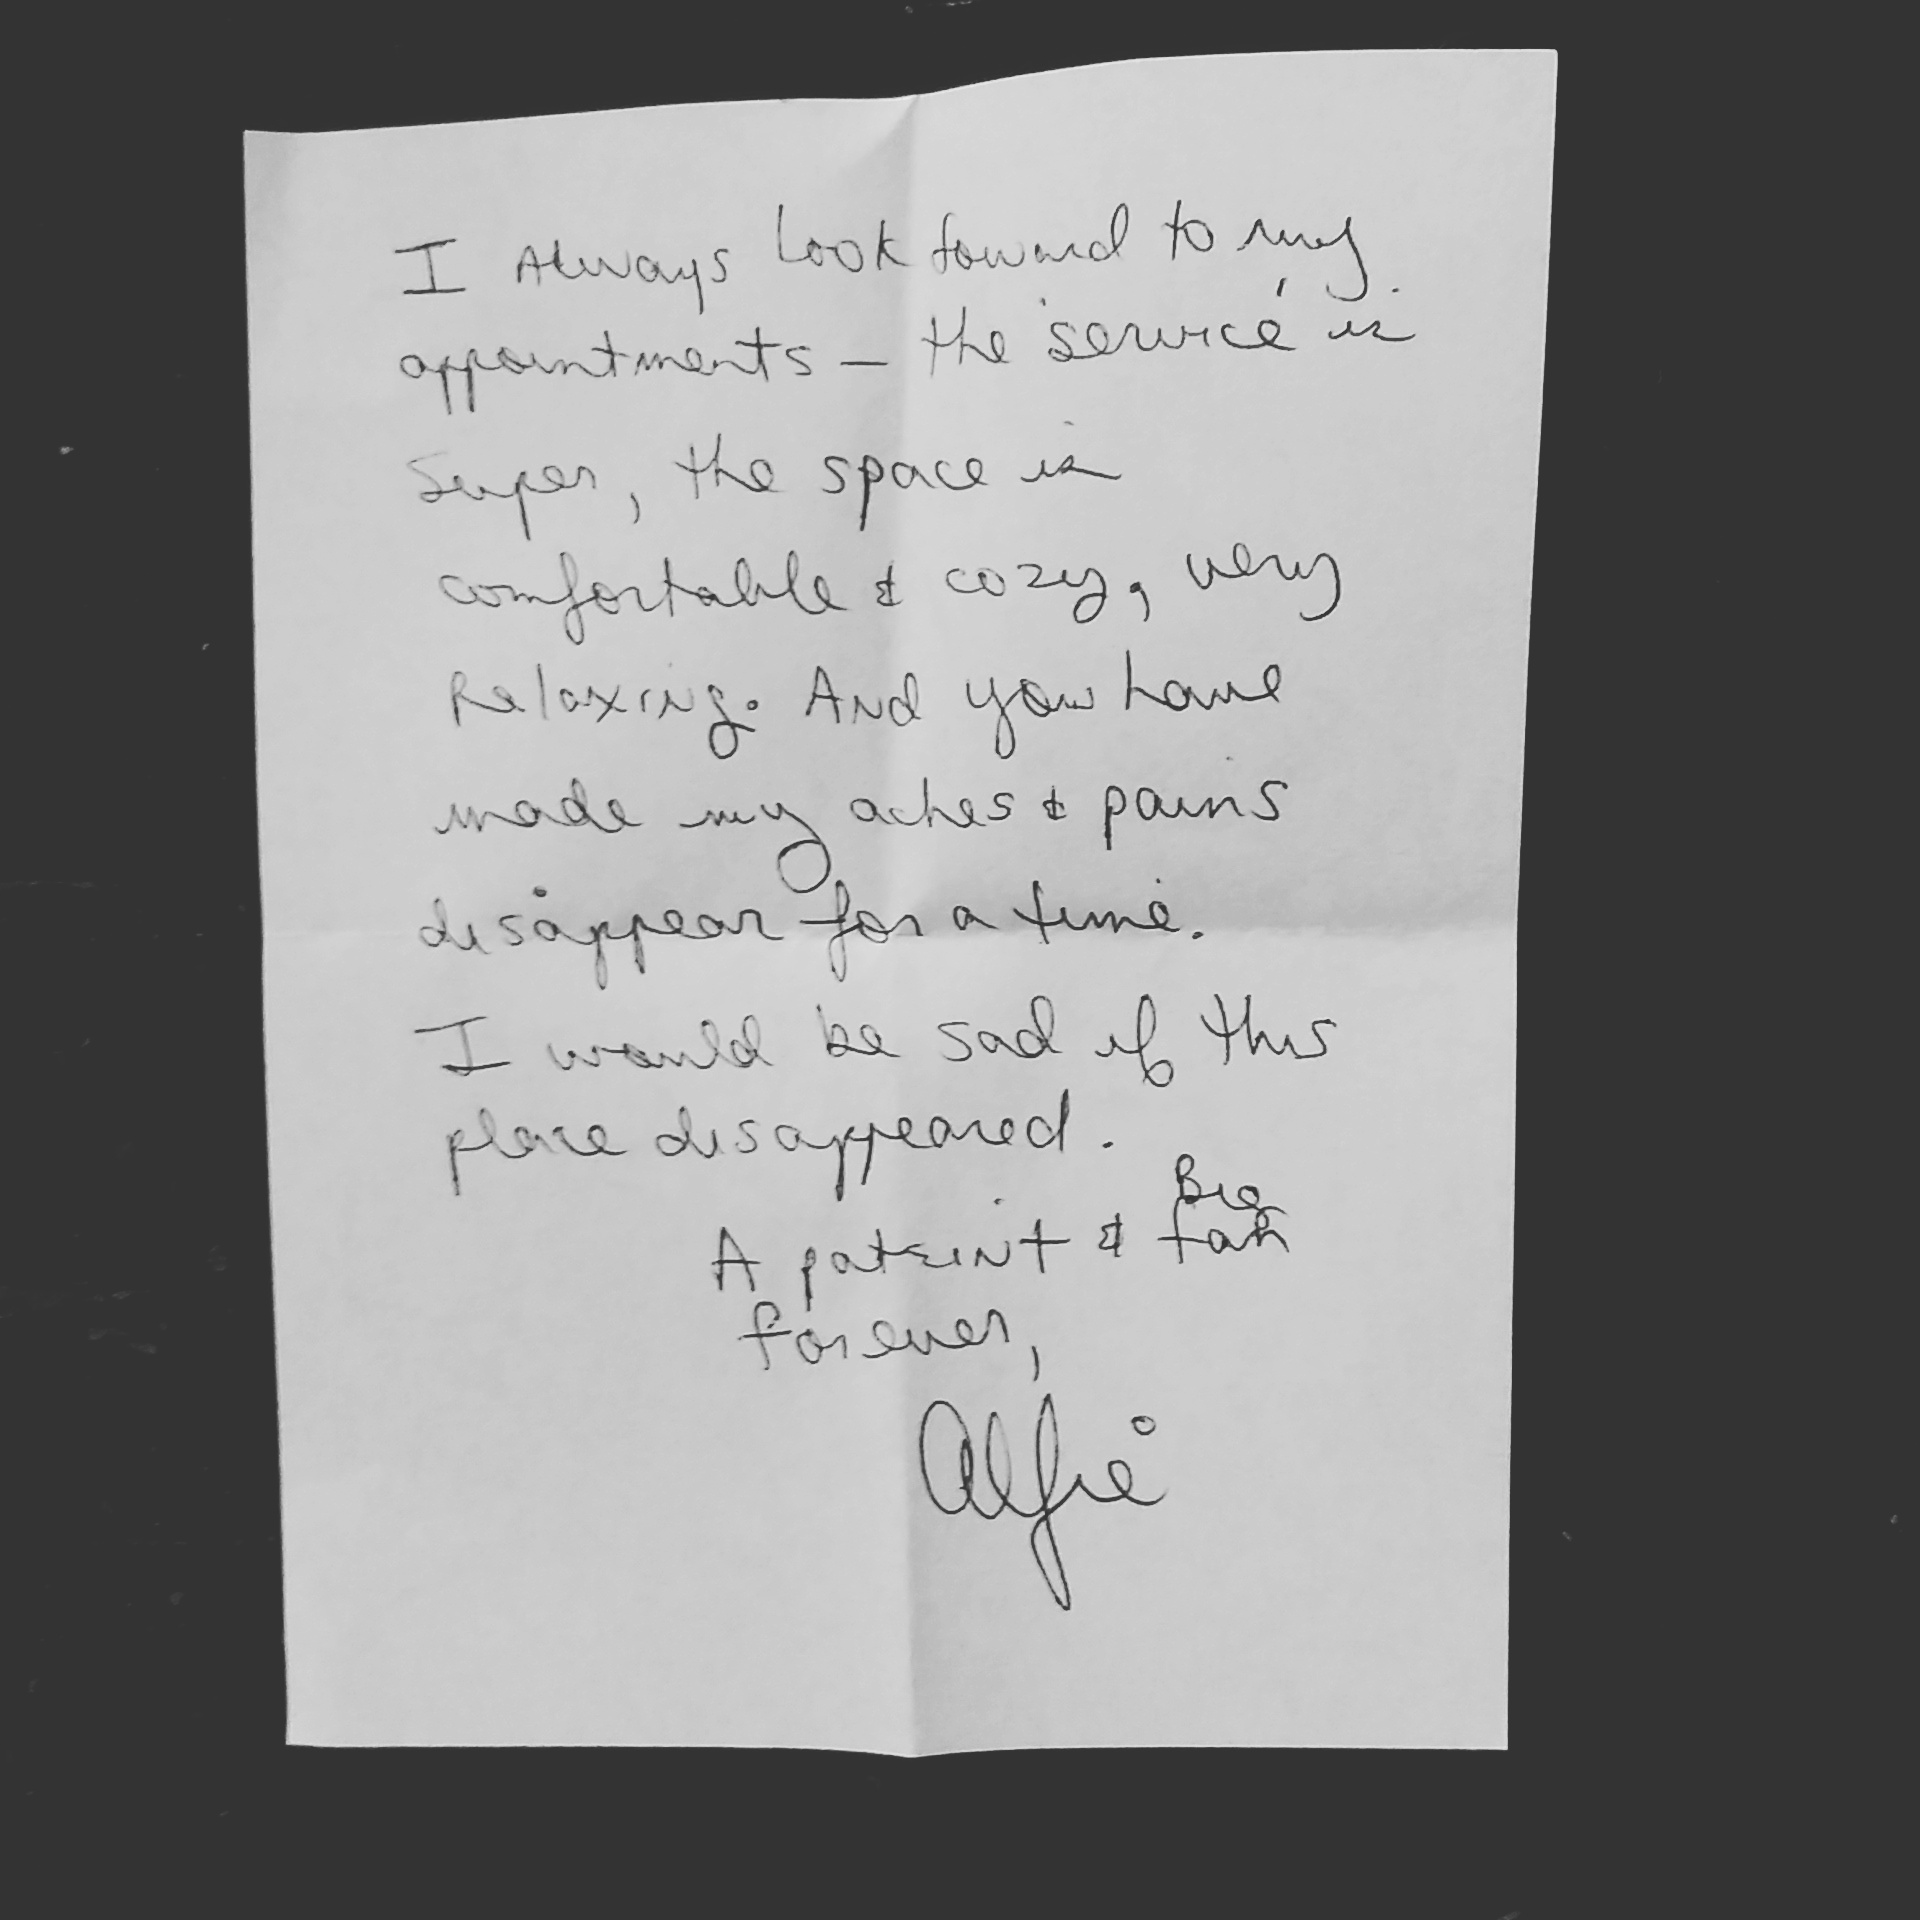 I Always look foward to my
appointments – the service is
Super, the space is
comfortable & cozy, very
Relaxing. And you have
made my aches & pains
disappear for a time.
I would be sad if this
place disappeared.
A pateint & Big fan
forever,
Alfie